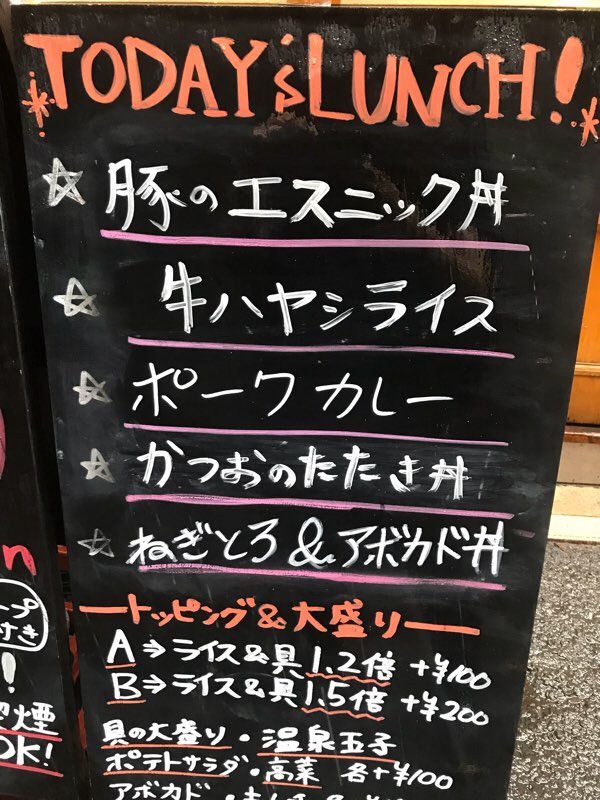 TODAY'S LUNCH!
☆ 豚のエスニック丼
☆ 牛ハヤシライス
☆ ポークカレー
☆ かつおのたたき丼
☆ ねぎとろ&アボカド丼
ートッピング&大盛りー
A⇒ライス&具1.2倍 +¥100
B⇒ライス&具1.5倍 +¥200
具の大盛り・温泉玉子
ポテトサラダ・高菜 各+¥100
アボカド・
n
き
!
煙
OK!